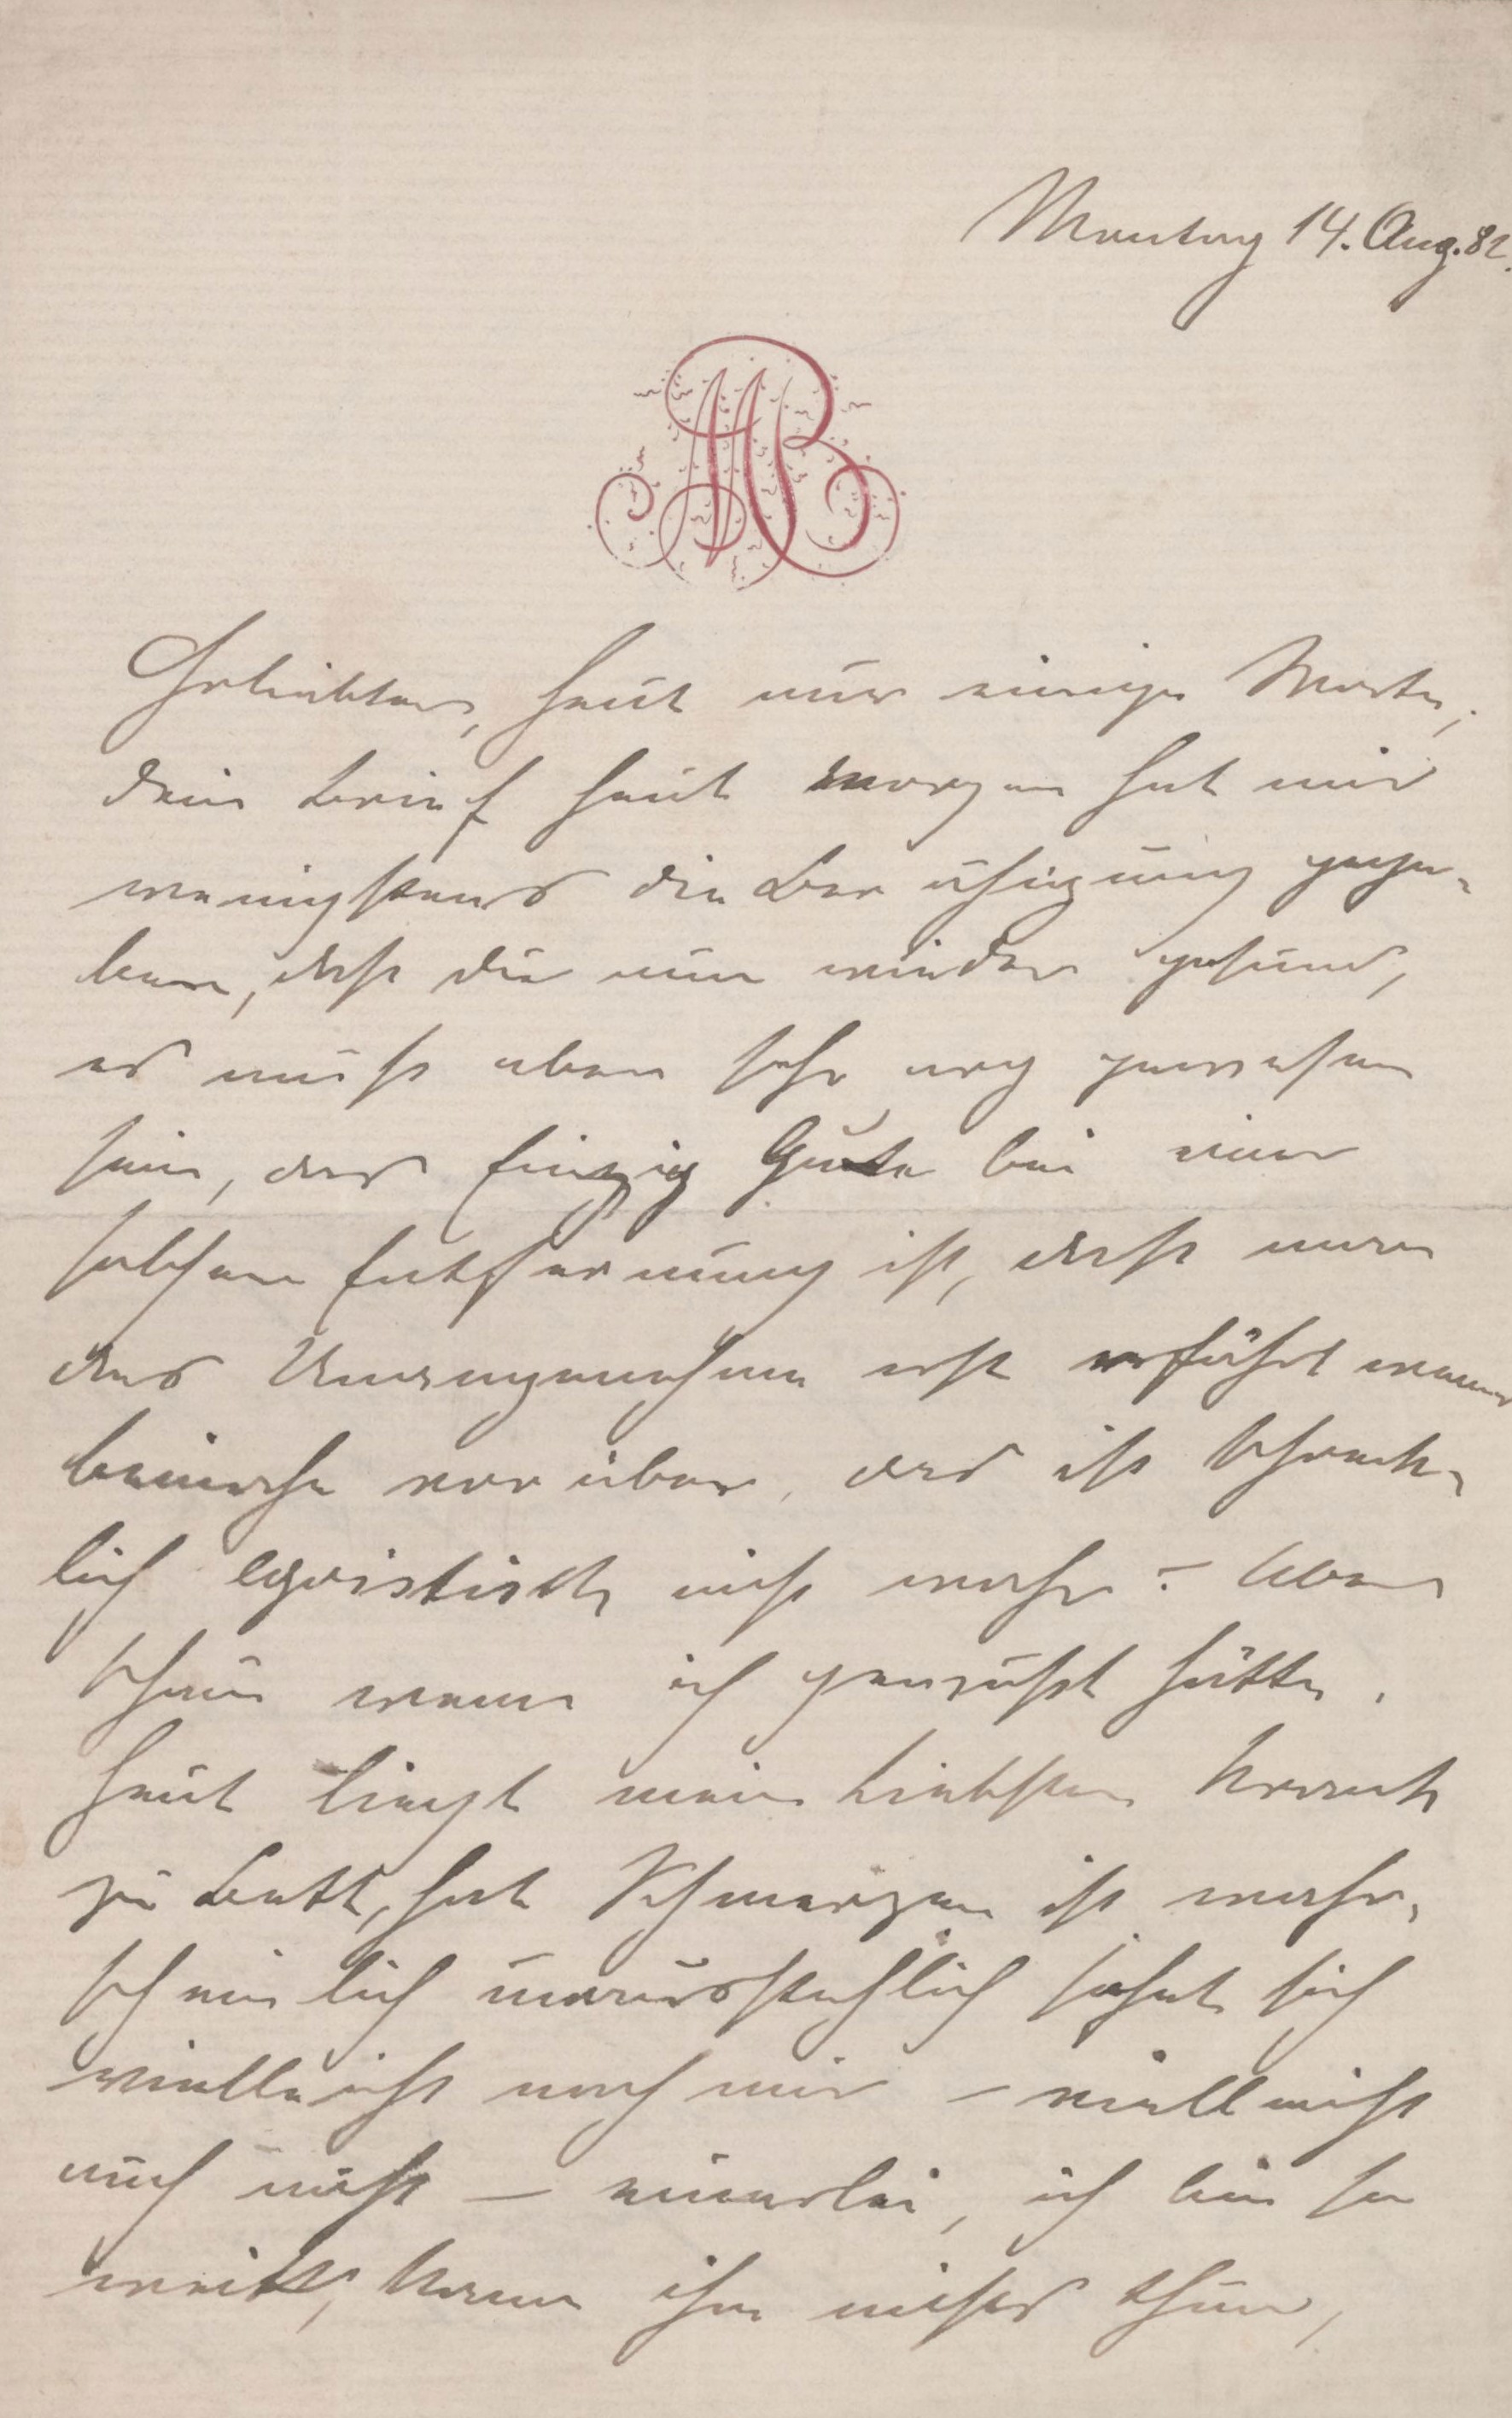 Montag 14. Aug. 82.
MB
Geliebter, heut nur einige Worte,
dein Brief heut morgen hat mir
wenigstens die Beruhigung gege-
ben, daß du nun wieder gesund,
es muß aber sehr arg gewesen
sein, das Einzig Gute bei einer
solchen Entfernung ist, daß man
das Unangenehme erst erfährt wenn
beinahe vorüber, das ist schreck-
lich egoistisch nicht wahr? Aber
schau wenn ich gewußt hätte,
heut liegt mein Liebster krank
zu Bett, hat Schmerzen ist wahr-
scheinlich unausstehlich sehnt sich
vielleicht nach mir – vielleicht
auch nicht – einerlei, ich bin so
weit, kann ihm nichts thun,